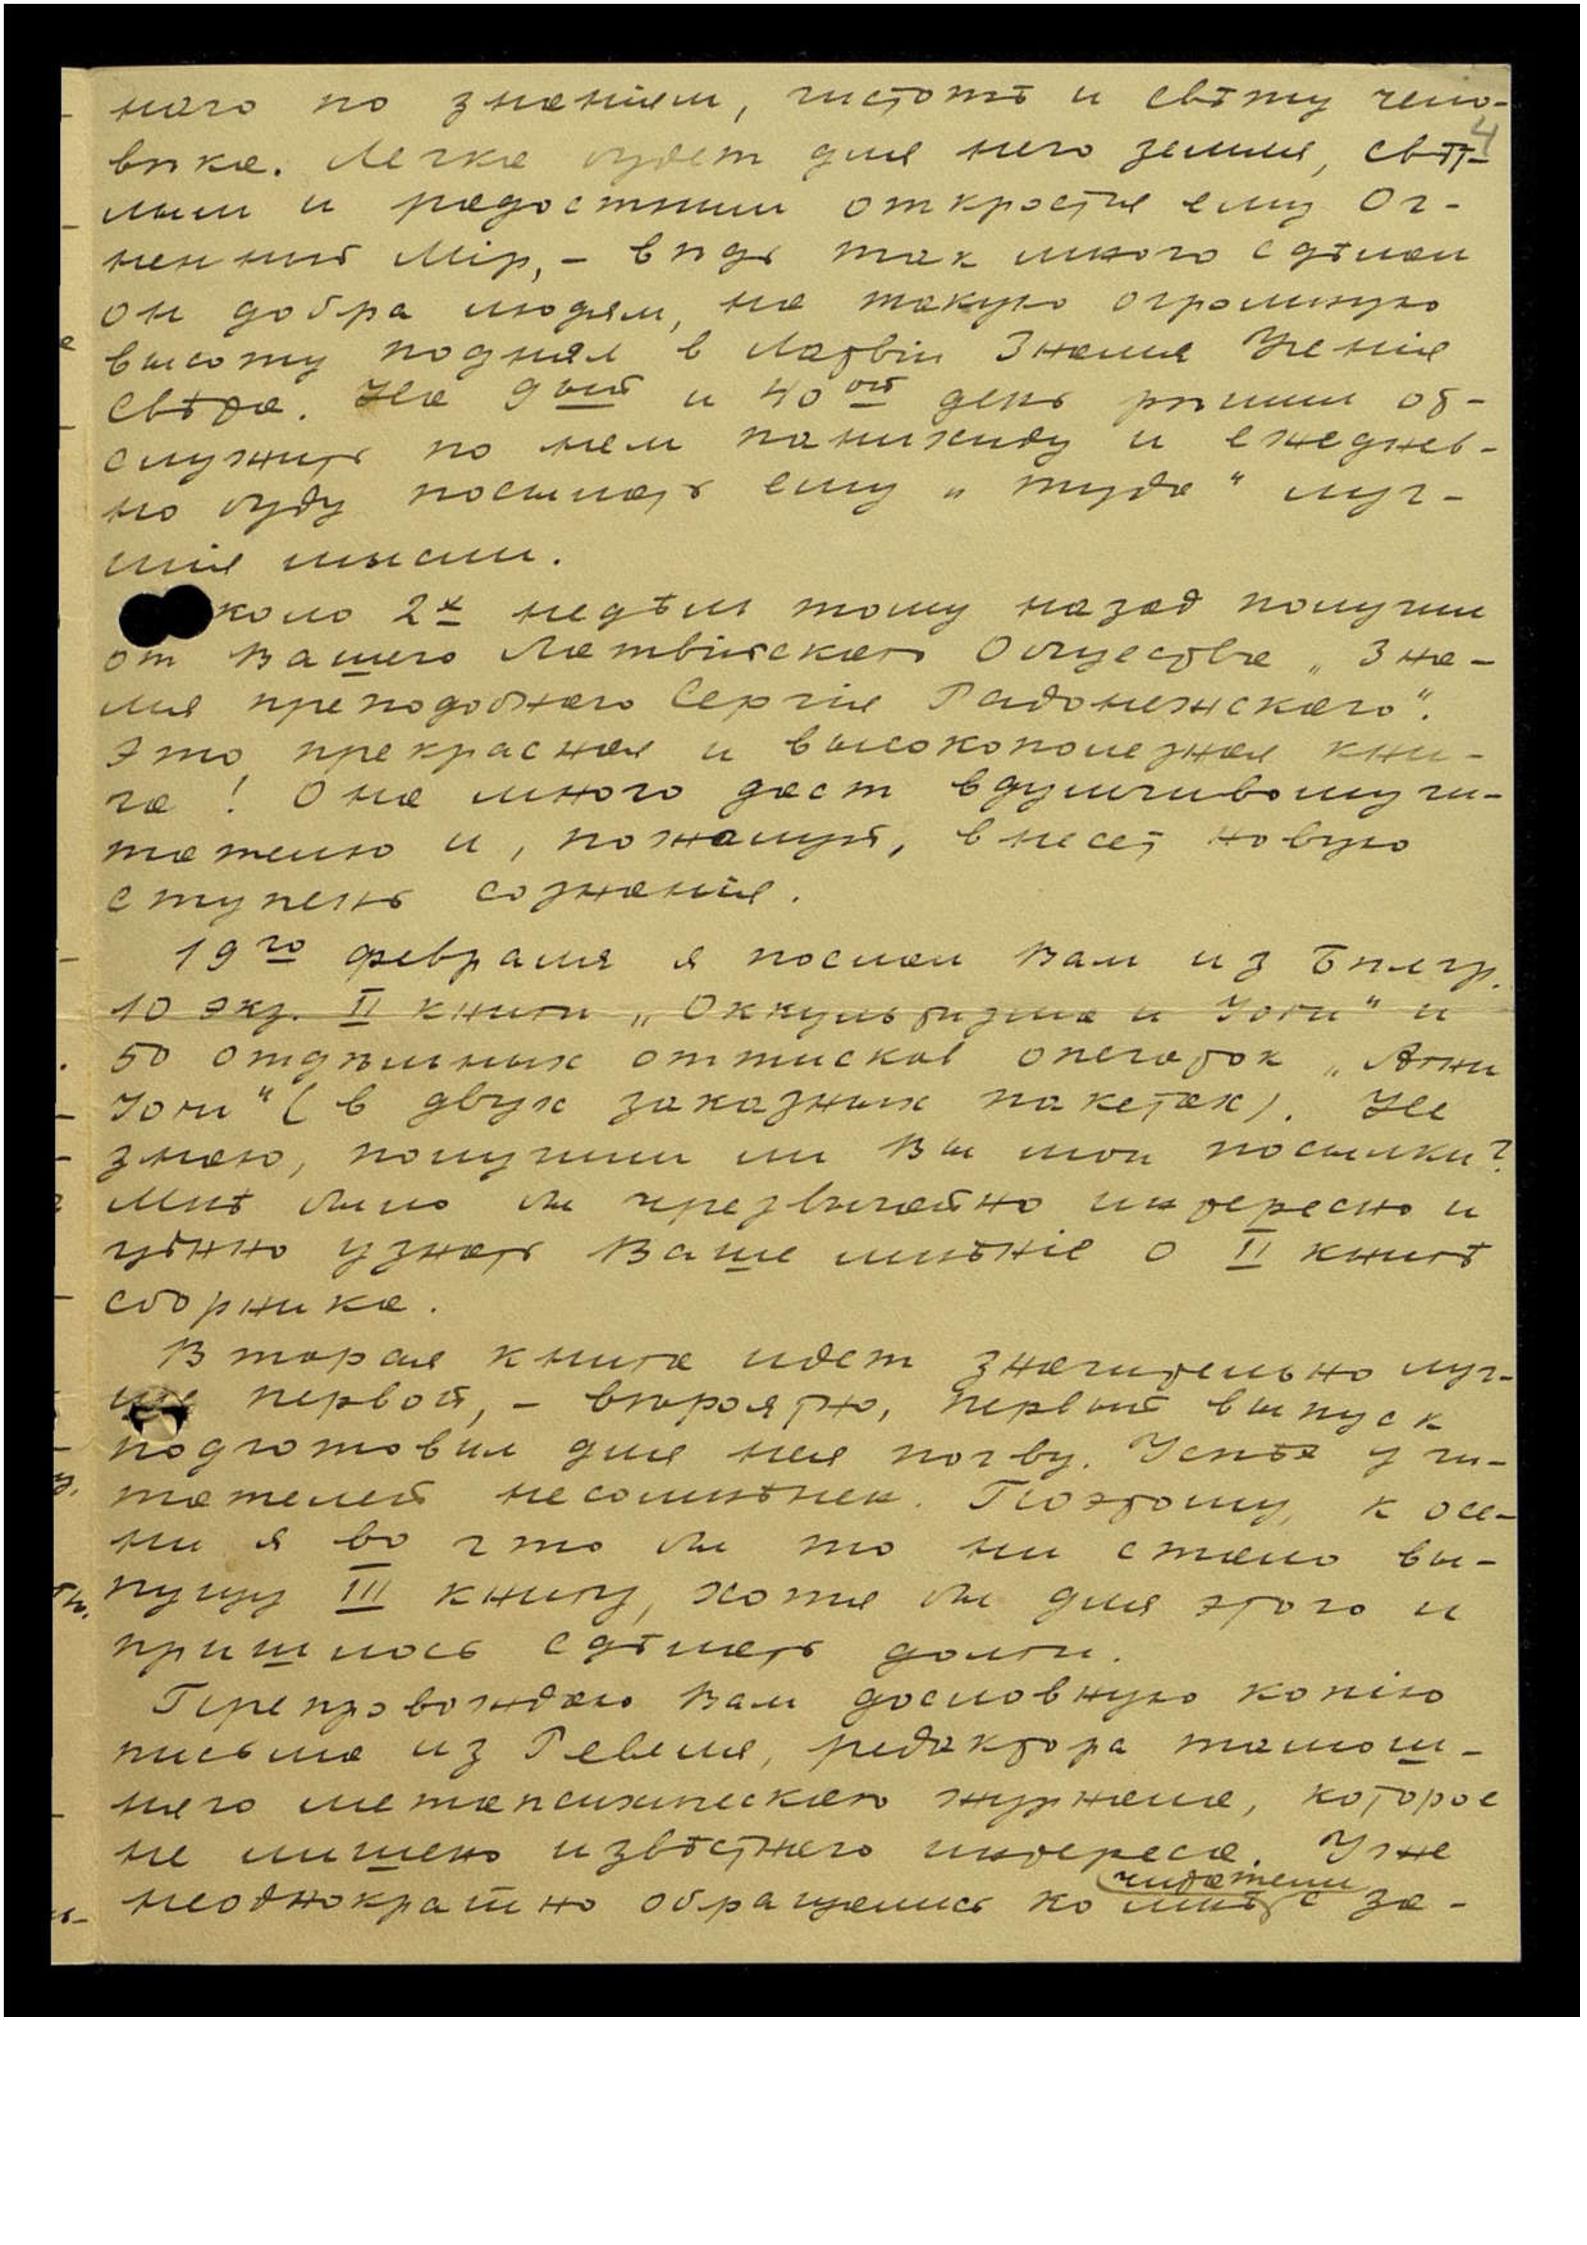 наго по знаніям, чистотѣ и свѣту чело-
4
вѣка. Легка будет для него земля, свѣт-
лым и радостным откроется ему Ог-
ненный Мір, – вѣдь так много сдѣлал
он добра людям, на такую огромную
высоту поднял в Латвіи Знамя Ученія
Свѣта. На 9ый и 40ой день рѣшил об-
служить по нем панихиду и ежеднев-
но буду посылать ему „туда“ луч-
шія мысли.
коло 2х недѣль тому назад получил
от Вашего Латвійскаго Общества „Зна-
мя преподобнаго Сергія Радонежскаго“.
Это прекрасная и высокополезная кни-
га! Она много даст вдумчивому чи-
тателю и, пожалуй, внесет новую
ступень сознанія.
19го февраля я послал Вам из Бѣлгр.
10 экз. II книги „Оккультизма и Йоги“ и
50 отдѣльных оттисков опечаток „Агни
Йоги“ (в двух заказных пакетах). Не
знаю, получили ли Вы мои посылки?
Мнѣ было бы чрезвычайно интересно и
цѣнно узнать Ваше мнѣніе о II книгѣ
сборника.
Вторая книга идет значительно луч-
ше первой, – вѣроятно, первый выпуск
подготовил для нея почву. Успѣх у чи-
тателей несомнѣнен. Поэтому, к осе-
ни я во что бы то ни стало вы-
пущу III книгу, хотя бы для этого и
пришлось сдѣлать долги.
Препровождаю Вам дословную копію
письма из Ревеля, редактора тамош-
няго метапсихическаго журнала, которое
не лишено извѣстнаго интереса. Уже
неоднократно обращались ко мнѣ читатели с за-